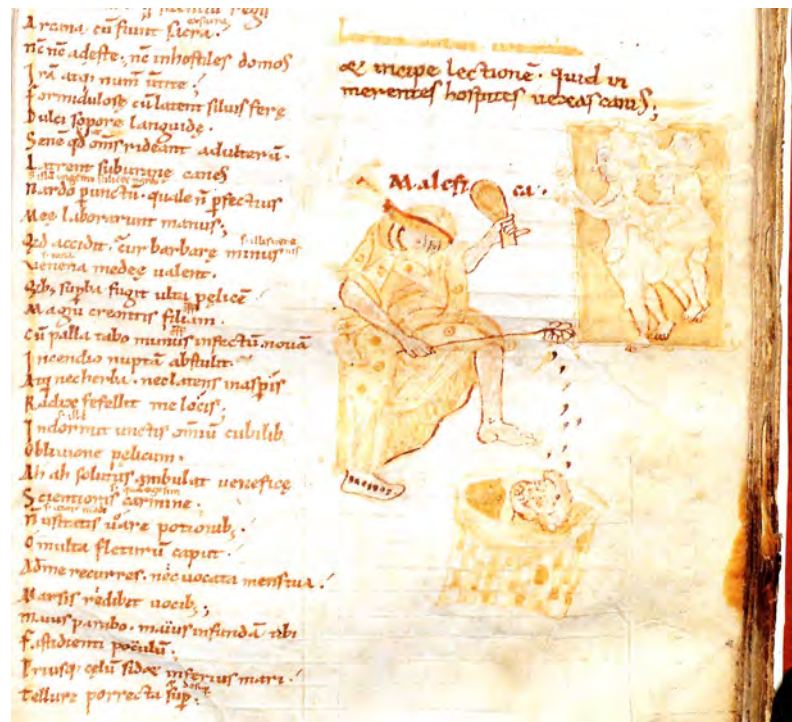 Arcana cū fiunt sacra.
nc̄ nc̄ adeste. nc̄ inhostiles domoS
Irā atq; numen uertite.
Formidulosę cū latent siluis ferę
Dulci sopore languidę.
Senē qd̄ om̄s rideant adulterū.
Latrent suburanę canes
Nardo punctū. quale n̄ p̄fectius
Meę laborarunt manus;
Qd̄ accidit. cur barbarę minus
Venena medeę ualent.
Qib; supba fugit ulta pelicē
Magni creontis filiam.
cū palla tabo munus infectū nouā
Incendio nuptā abstulit.
Atq; nec herba. nec latens inaspis
Radix fefellit me locis;
Indormit unctis omiū cubilib
Obliuione pelicum.
Ah ah solutus. ambulat ueneficę
Scientioris carmine.
n̄ usitatis uare potionib;
O multa fleturū caput.
Adme recurres. nec uocata menstua.
Marsis redibet uocib;
maius parabo. maius infundā tibi
Fastidienti poculū.
Priusq; celū sidæ inferius mari.
tellure porrecta sup;
& incipe lectionē. quid in
merentes hospites uexas caniS;
Malefi ca.